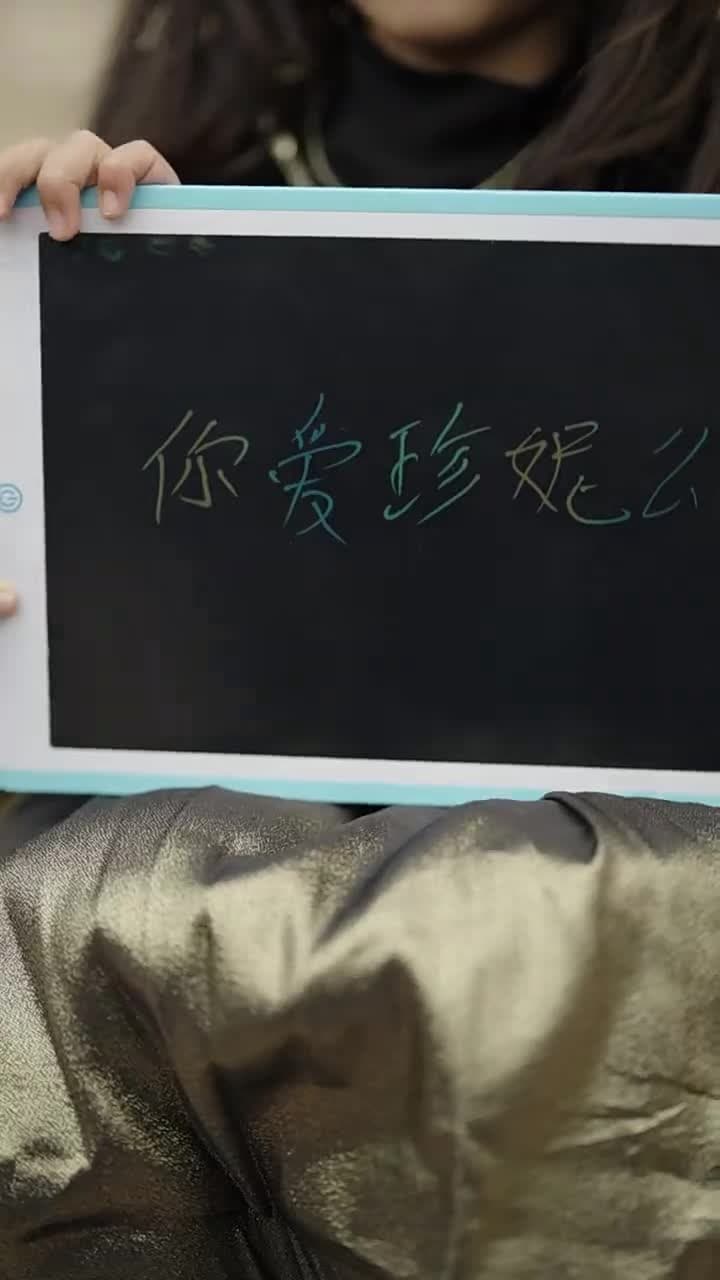 你爱珍妮